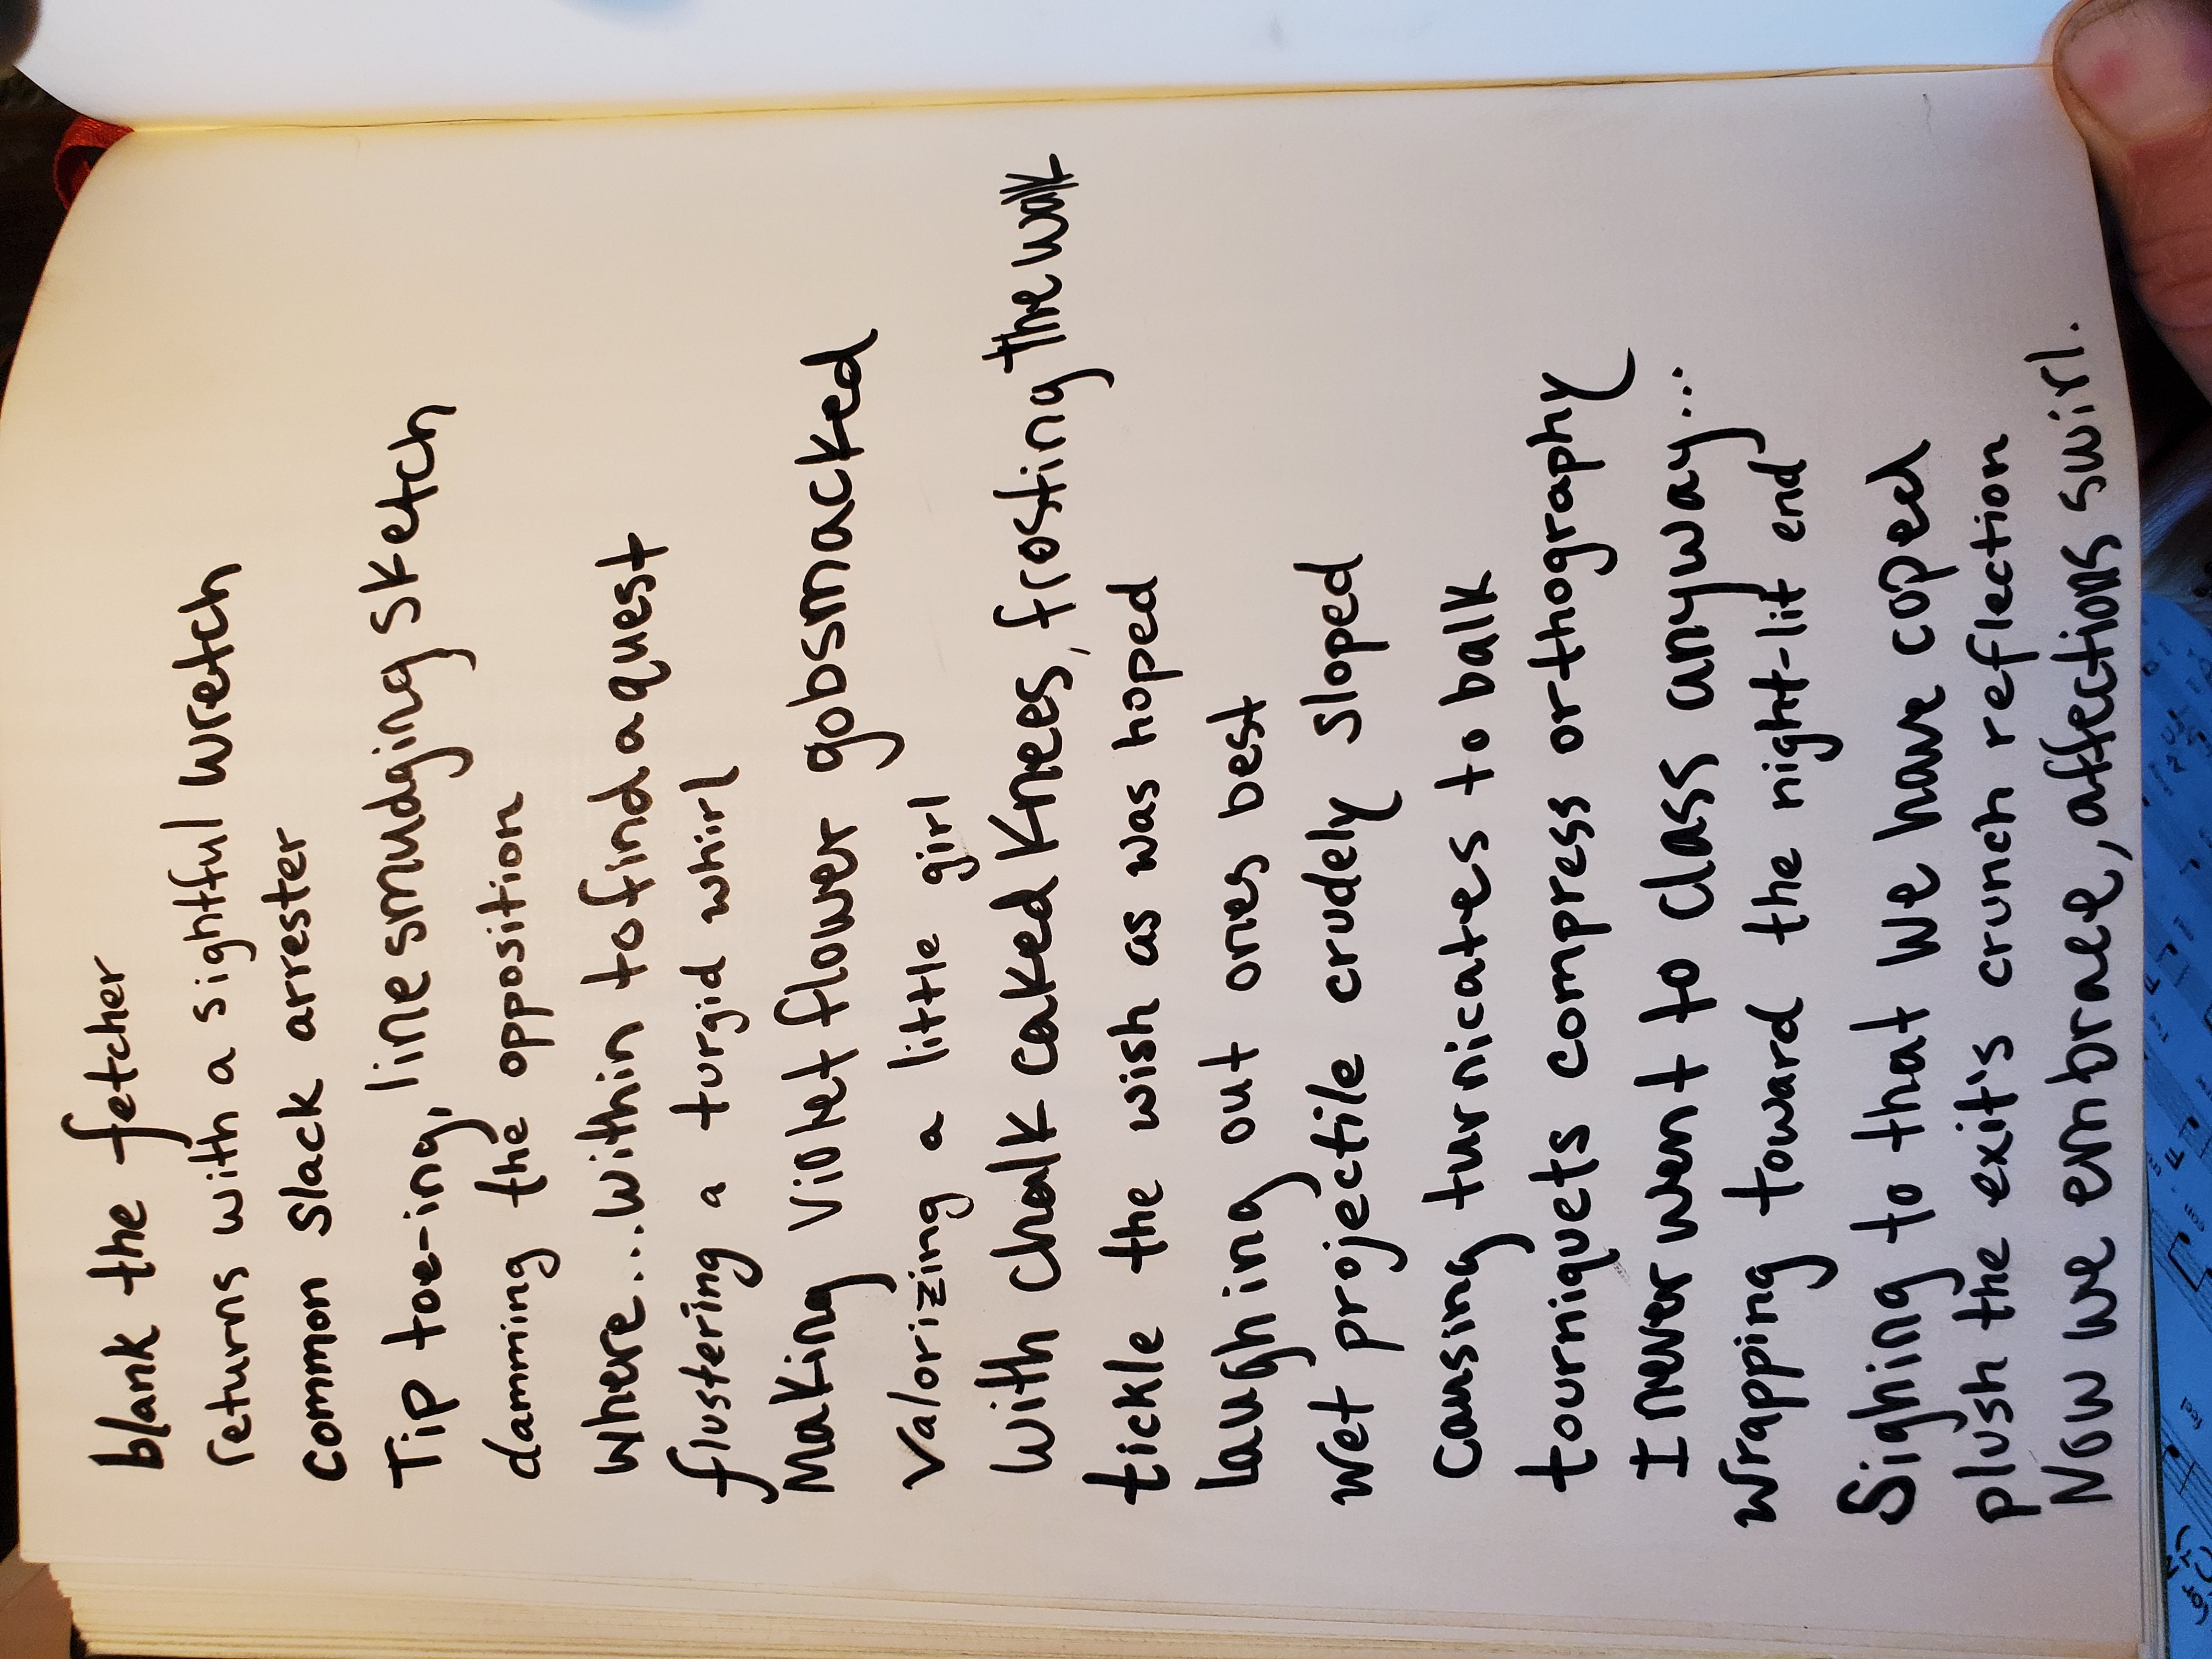 blank the fetcher
returns with a sightful wretch
common slack arrester
Tip toe-ing, line smudging sketch
damming the opposition
where...within to find a quest
flustering a turgid whirl
Making violet flower gobsmacked
Valorizing a little girl
with chalk caked knees, frosting the walk
tickle the wish as was hoped
laughing out ones best
wet projectile crudely sloped
causing turnicates to balk
tourniquets compress orthography
I never went to class anyway...
wrapping toward the night-lit end
Sighing to that we have coped
plush the exit's crunch reflection
Now we embrace, affections swirl.
feel
can
F